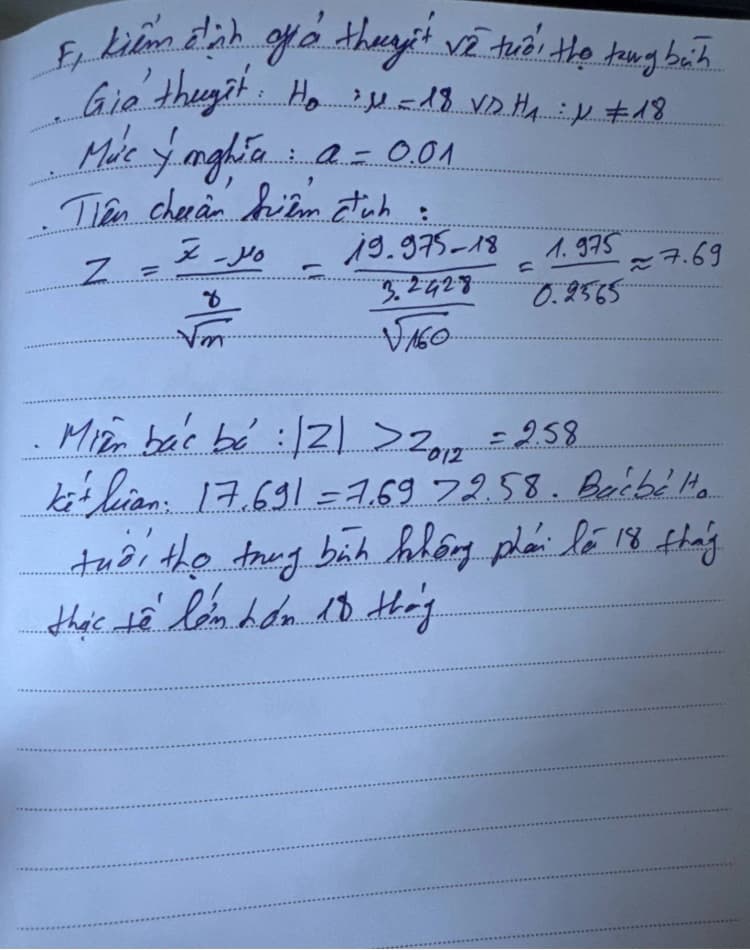 F, kiểm định giả thuyết về tuổi thọ trung bình
. Giả thuyết : H₀ : μ = 18 vs H₁ : μ ≠ 18
. Mức ý nghĩa : α = 0.01
. Tiêu chuẩn kiểm định :
Z = (x̄ - μ₀) / (s/√n) = (19.975 - 18) / (3.2428/√160) = 1.975 / 0.2565 ≈ 7.69
. Miền bác bỏ : |Z| > Z₀₁₂ = 2.58
kết luận: |7.69| = 7.69 > 2.58. Bác bỏ H₀
tuổi thọ trung bình không phải là 18 tháng
thực tế lớn hơn 18 tháng